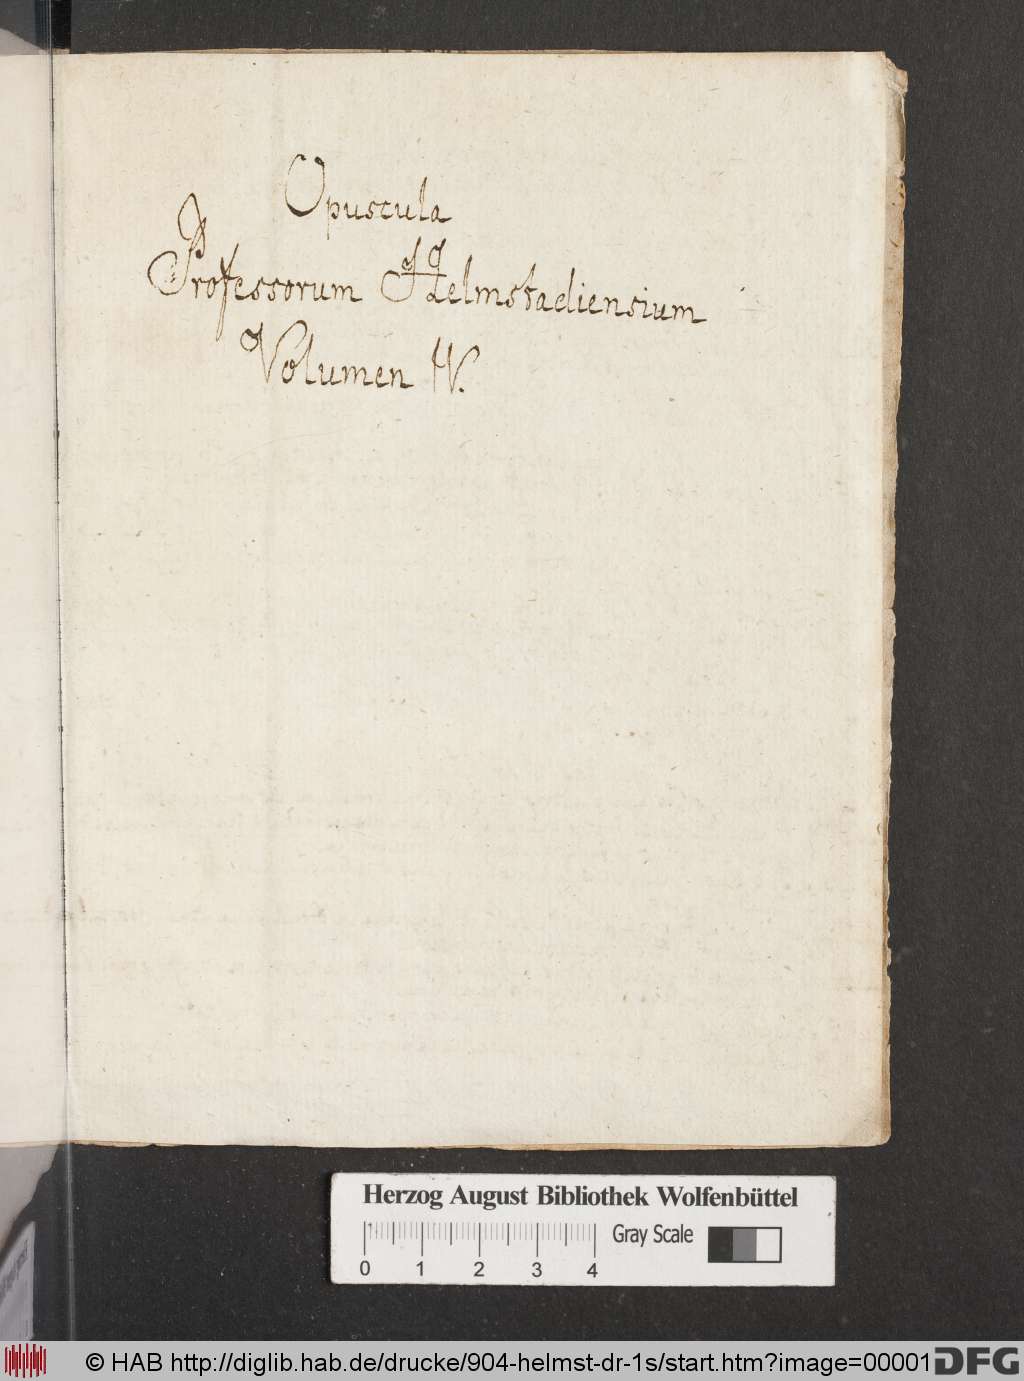 Opuscula
Professorum Helmstadiensium
Volumen IV.
Herzog August Bibliothek Wolfenbüttel
0 1 2 3 4
Gray Scale
© HAB http://diglib.hab.de/drucke/904-helmst-dr-1s/start.htm?image=00001
DFG